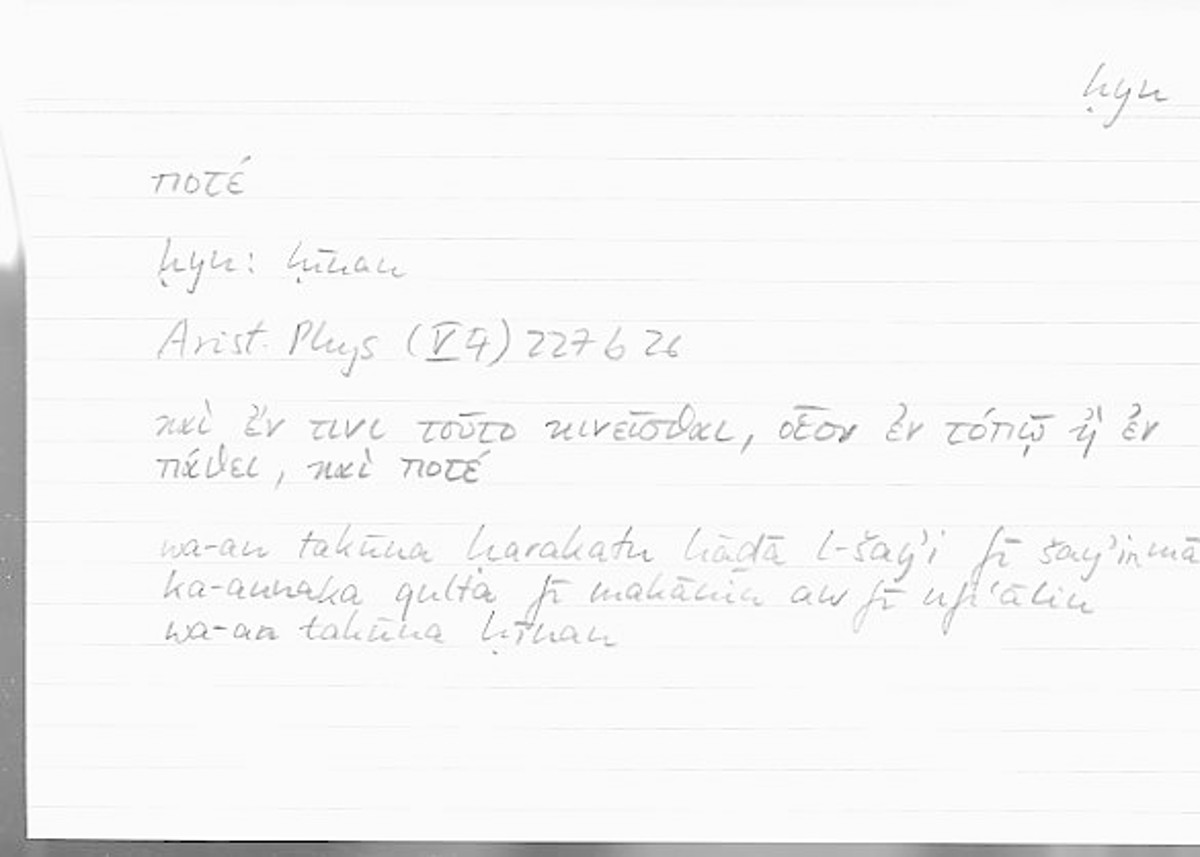 ḥyn
ποτέ
ḥyn: ḥīnan
Arist. Phys (V 4) 227 b 26
καὶ ἔν τινι τοῦτο κινεῖσθαι, οἷον ἐν τόπῳ ἢ ἐν
πάθει, καὶ ποτέ
wa-an takūna ḥarakatu hāḏā l-šayʾi fī šayʾin mā
ka-annaka qulta fī makānin aw fī nfiʿālin
wa-an takūna ḥīnan